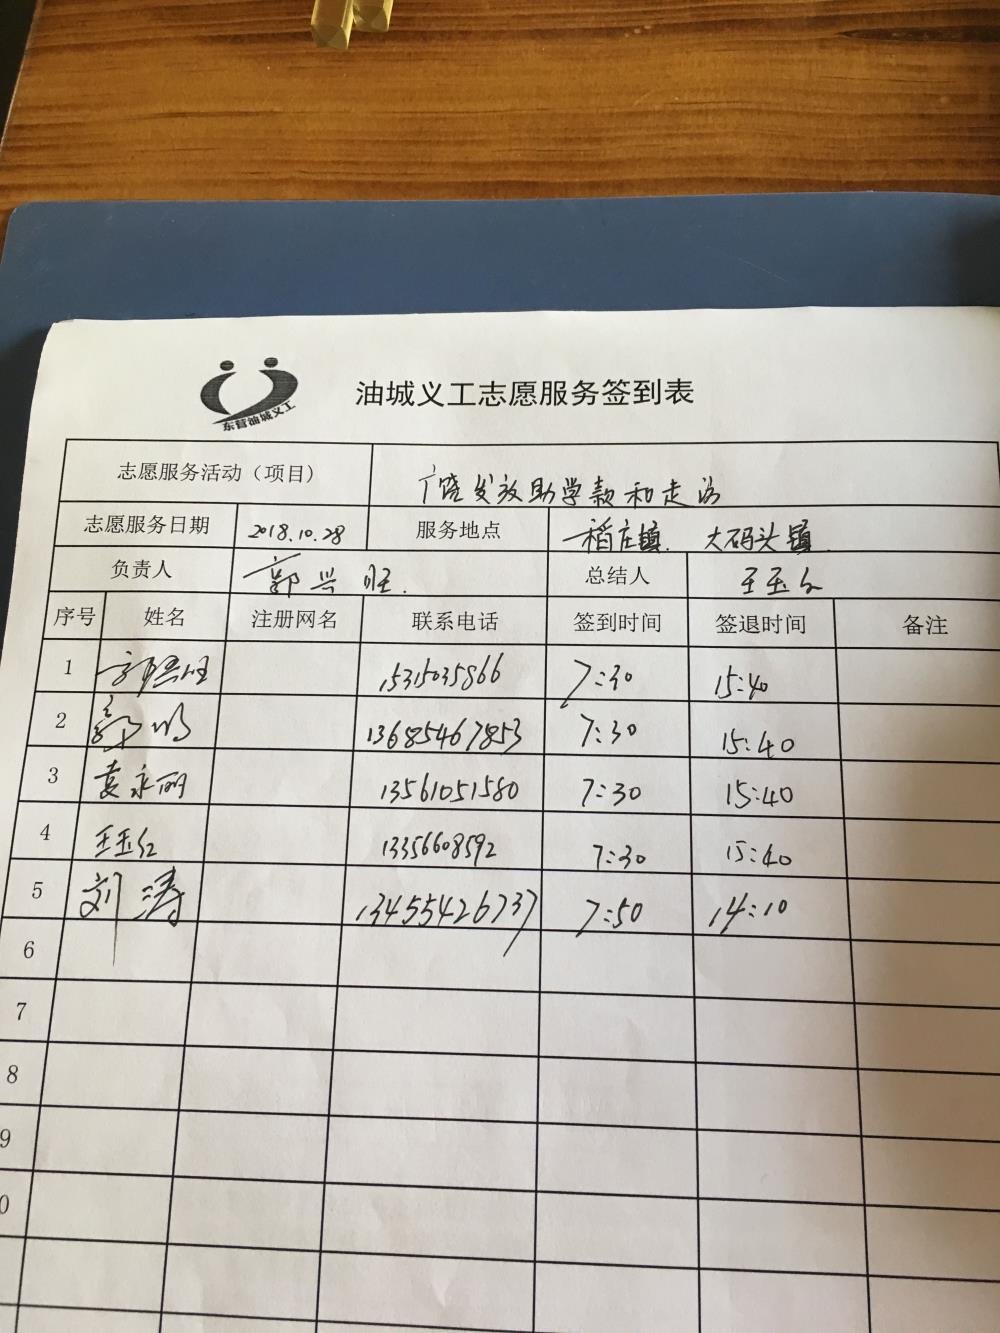 东营油城义工
油城义工志愿服务签到表
志愿服务活动（项目） 广饶发放助学款和走访
志愿服务日期 2018.10.28 服务地点 稻庄镇. 大码头镇.
负责人 郭兴旺. 总结人 王玉红
序号 姓名 注册网名 联系电话 签到时间 签退时间 备注
1 郭兴旺 15315035866 7:30 15:40
2 13685467853 7:30 15:40
3 袁永丽 13561051580 7:30 15:40
4 王玉红 13356608592 7:30 15:40
5 刘涛 13455426737 7:50 14:10
6
7
8
9
0